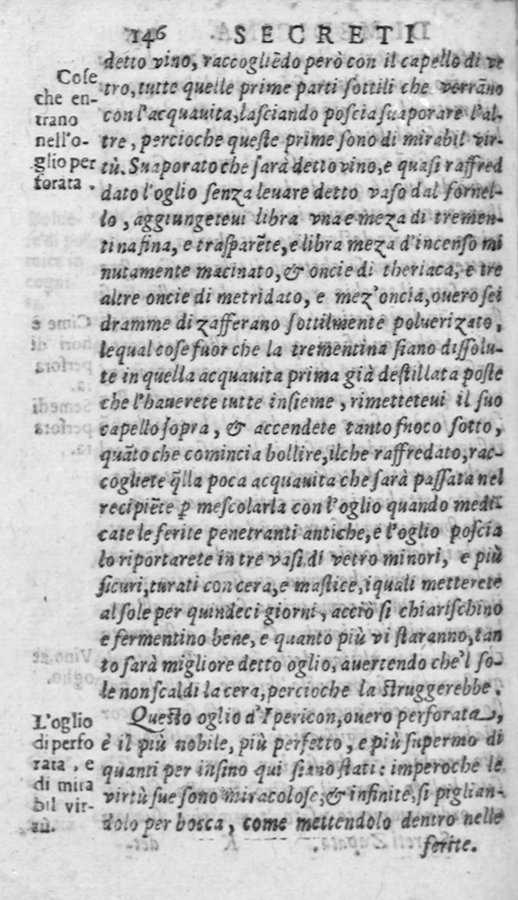 146 SECRETI
detto vino, raccogliẽdo però con il capello di ve
tro, tutte quelle prime parti sottili che verrãno
con l'acquauita, lasciando poscia suaporare l'al-
tre, percioche queste prime sono di mirabil vir-
tù. Suaporato che sarà detto vino, e quasi raffred
dato l'oglio senza leuare detto vaso dal fornel-
lo, aggiungeteui libra vna e meza di tremen-
tina fina, e trasparẽte, e libra meza d'incenso mi
nutamente macinato, & oncie di theriaca, e tre
altre oncie di metridato, e mez'oncia, ouero sei
dramme di zafferano sottilmente poluerizato,
le qual cose fuor che la trementina siano dissolu-
te in quella acquauita prima già destillata poste
che l'hauerete tutte insieme, rimetteteui il suo
capello sopra, & accendete tanto fuoco sotto,
quãto che comincia bollire, ilche raffredato, rac-
cogliete q̃lla poca acquauita che sarà passata nel
recipiẽte p mescolarla con l'oglio quando medi-
cate le ferite penetranti antiche, e l'oglio poscia
lo riportarete in tre vasi di vetro minori, e più
sicuri, turati con cera, e mastice, i quali metterete
al sole per quindeci giorni, acciò si chiarischino
e fermentino bene, e quanto più vi staranno, tan
to sarà migliore detto oglio, auertendo che'l so-
le non scaldi la cera, percioche la struggerebbe.
Questo oglio d'Ipericon, ouero perforata,
è il più nobile, più perfetto, e più supermo di
quanti per insino qui siano stati: imperoche le
virtù sue sono miracolose, & infinite, si piglian-
dolo per bocca, come mettendolo dentro nelle
ferite.
Cose
che en-
trano
nell'o-
glio per
forata.
L'oglio
di perfo
rata, e
di mira
bil vir-
tù.